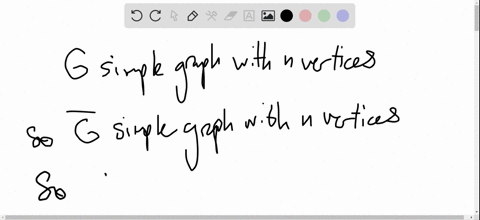 G simple graph with n vertices
so G̅ simple graph with n vertices
So